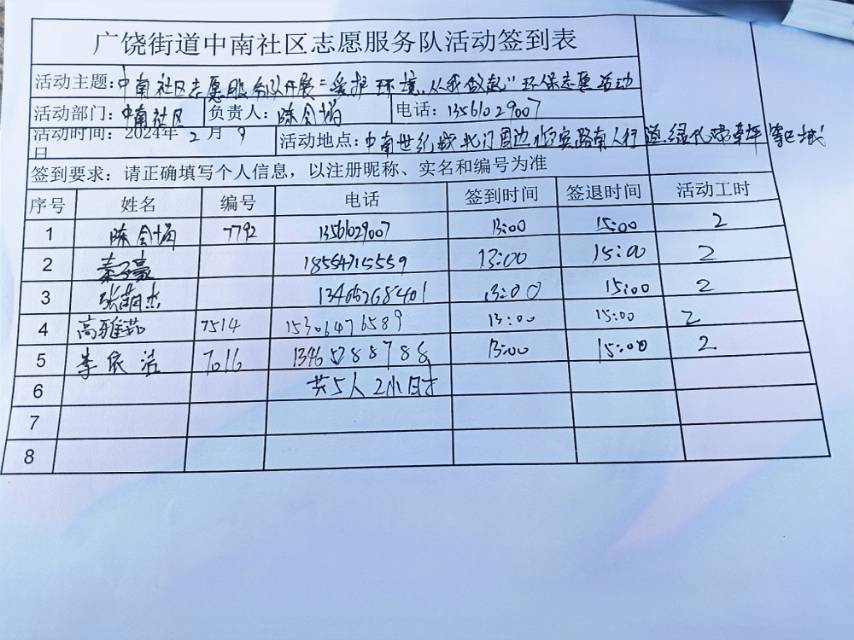 广饶街道中南社区志愿服务队活动签到表
活动主题：中南社区志愿服务队开展"爱护环境，从我做起"环保志愿活动
活动部门：中南社区 负责人：陈会娟 电话：13561029007
活动时间：2024年 2 月 9 日 活动地点：中南世纪城北门周边 路南人行道、绿化带草坪等区域
签到要求：请正确填写个人信息，以注册昵称、实名和编号为准
序号 姓名 编号 电话 签到时间 签退时间 活动工时
1 陈会娟 7792 13561029007 13:00 15:00 2
2 秦子豪 18554715559 13:00 15:00 2
3 张萌杰 13465768401 13:00 15:00 2
4 高雅茹 7514 15306476589 13:00 15:00 2
5 李依洁 7016 13465288788 13:00 15:00 2
6 共5人 2小时
7
8